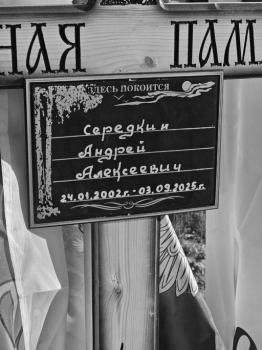 НАЯ ПАМ
ЗДЕСЬ ПОКОИТСЯ
Середкин
Андрей
Алексеевич
24.01.2002г.- 03.09.2025г.